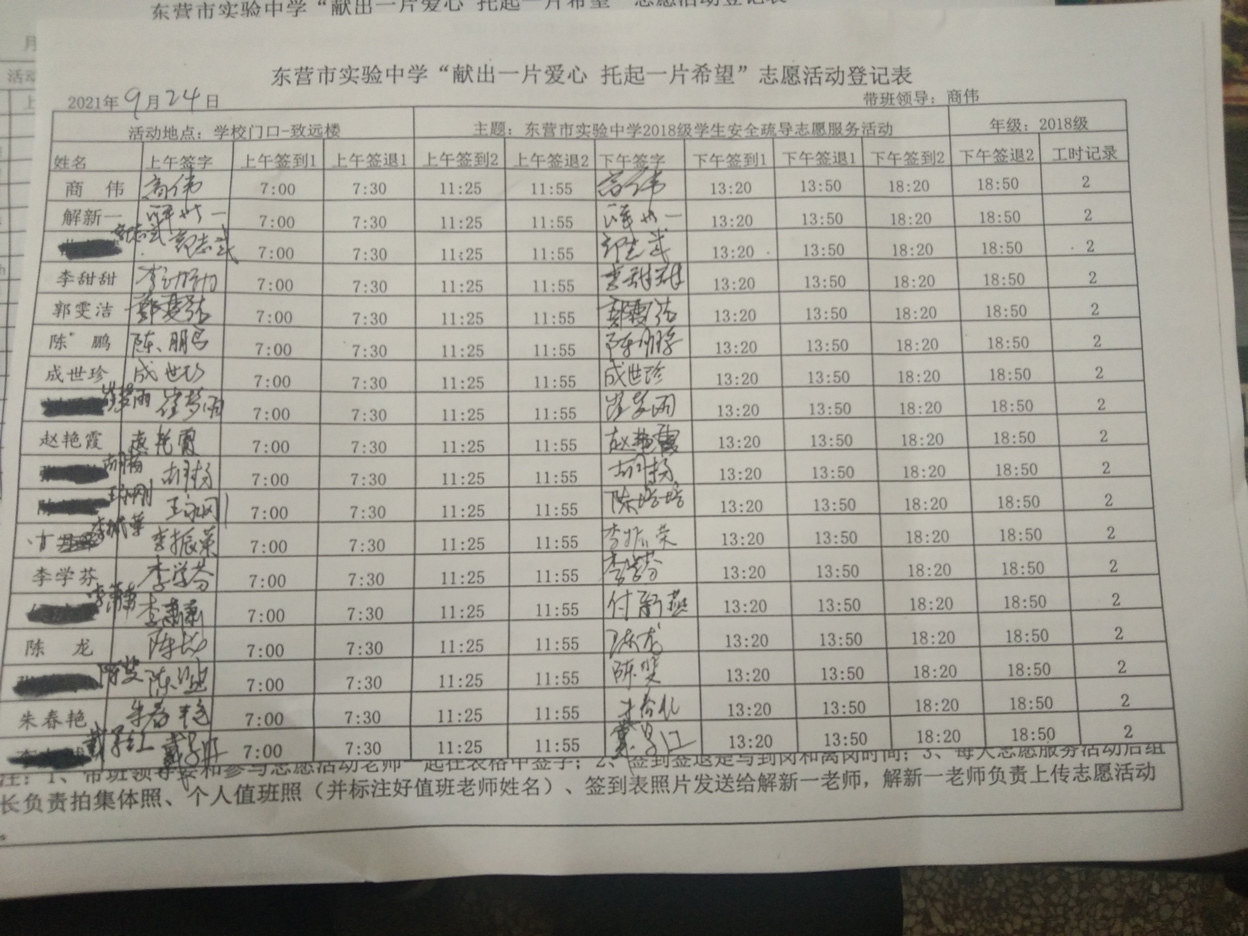 东营市实验中学“献出一片爱心 托起一片希望”志愿活动登记表
东营市实验中学“献出一片爱心 托起一片希望”志愿活动登记表
2021年9月24日 带班领导：商伟
活动地点：学校门口-致远楼 主题：东营市实验中学2018级学生安全疏导志愿服务活动 年级：2018级
姓名 上午签字 上午签到1 上午签退1 上午签到2 上午签退2 下午签字 下午签到1 下午签退1 下午签到2 下午签退2 工时记录
商 伟 商伟 7:00 7:30 11:25 11:55 商伟 13:20 13:50 18:20 18:50 2
解新一 解新一 7:00 7:30 11:25 11:55 解新一 13:20 13:50 18:20 18:50 2
7:00 7:30 11:25 11:55 13:20 13:50 18:20 18:50 2
李甜甜 7:00 7:30 11:25 11:55 李甜甜 13:20 13:50 18:20 18:50 2
郭雯洁 郭雯洁 7:00 7:30 11:25 11:55 郭雯洁 13:20 13:50 18:20 18:50 2
陈 鹏 陈鹏 7:00 7:30 11:25 11:55 陈鹏 13:20 13:50 18:20 18:50 2
成世珍 成世珍 7:00 7:30 11:25 11:55 成世珍 13:20 13:50 18:20 18:50 2
崔梦雨 崔梦雨 7:00 7:30 11:25 11:55 崔梦雨 13:20 13:50 18:20 18:50 2
赵艳霞 赵艳霞 7:00 7:30 11:25 11:55 赵艳霞 13:20 13:50 18:20 18:50 2
胡杨 胡杨 7:00 7:30 11:25 11:55 胡杨 13:20 13:50 18:20 18:50 2
王永刚 王永刚 7:00 7:30 11:25 11:55 陈培培 13:20 13:50 18:20 18:50 2
李振荣 李振荣 7:00 7:30 11:25 11:55 李振荣 13:20 13:50 18:20 18:50 2
李学芬 李学芬 7:00 7:30 11:25 11:55 李学芬 13:20 13:50 18:20 18:50 2
7:00 7:30 11:25 11:55 13:20 13:50 18:20 18:50 2
陈 龙 陈龙 7:00 7:30 11:25 11:55 陈龙 13:20 13:50 18:20 18:50 2
7:00 7:30 11:25 11:55 13:20 13:50 18:20 18:50 2
朱春艳 朱春艳 7:00 7:30 11:25 11:55 13:20 13:50 18:20 18:50 2
7:00 7:30 11:25 11:55 13:20 13:50 18:20 18:50 2
注：1、带班领导要和参与志愿活动老师一起在表格中签字；2、签到签退是写到岗和离岗时间；3、每天志愿服务活动后组
长负责拍集体照、个人值班照（并标注好值班老师姓名）、签到表照片发送给解新一老师，解新一老师负责上传志愿活动